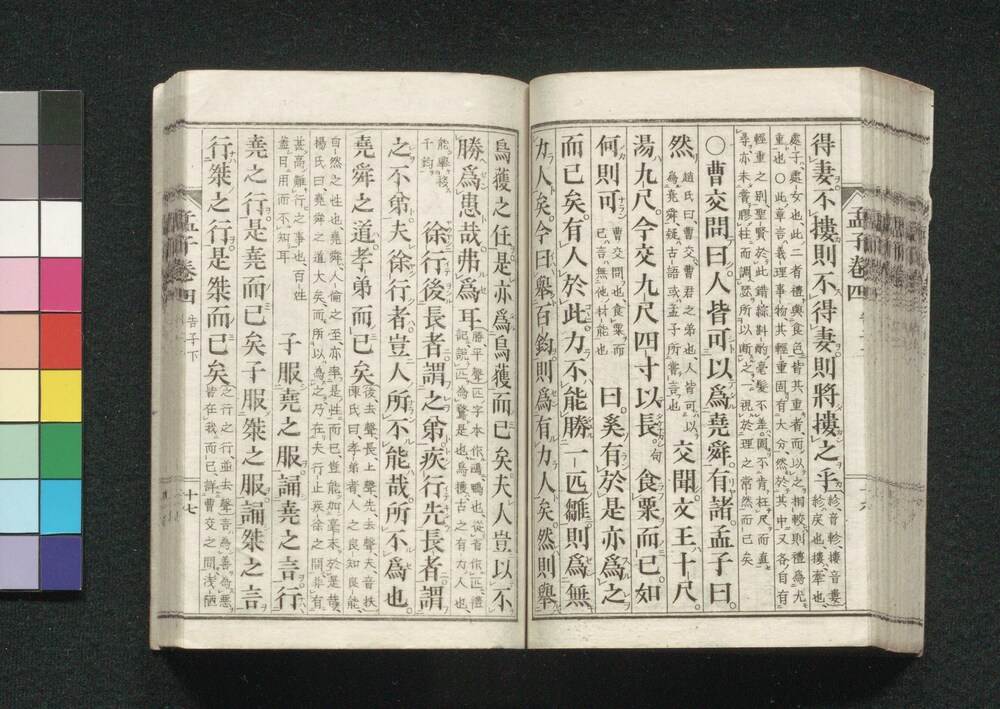 得妻不摟則不得妻則將摟之乎
紾音軫摟音婁
紾戾也摟牽也
處子處女也此二者禮與食色皆其重者而以之相較則禮爲尤
重也○此章言義理事物其輕重固有大分然於其中又各自有
輕重之別聖賢於此錯綜斟酌毫髮不差固不肯枉尺而直
尋亦未嘗膠柱而調瑟所以斷之一視於理之當然而已矣
○曹交問曰人皆可以爲堯舜有諸孟子曰
然
趙氏曰曹交曹君之弟也人皆可以
爲堯舜疑古語或孟子所嘗言也
交聞文王十尺
湯九尺今交九尺四寸以長句食粟而已如
何則可
曹交問也食粟而
已言無他材能也
曰奚有於是亦爲之
而已矣有人於此力不能勝一匹雛則爲無
力人矣今曰舉百鈞則爲有力人矣然則舉
孟子卷四
烏獲之任是亦爲烏獲而已矣夫人豈以不
勝爲患哉弗爲耳
勝平聲匹字本作鴄鴨也從省作匹禮
記說匹爲鶩是也烏獲古之有力人也
能舉移
千鈞
徐行後長者謂之弟疾行先長者謂
之不弟夫徐行者豈人所不能哉所不爲也
堯舜之道孝弟而已矣
後去聲長上聲先去聲夫音扶
陳氏曰孝弟者人之良知良能
自然之性也堯舜人倫之至亦率是性而已豈能加毫末於是哉
楊氏曰堯舜之道大矣而所以爲之乃在夫行止疾徐之間非有
甚高難行之事也百姓
蓋日用而不知耳
子服堯之服誦堯之言行
堯之行是堯而已矣子服桀之服誦桀之言
行桀之行是桀而已矣
之行之行並去聲言爲善爲惡
皆在我而已詳曹交之問淺陋
孟子卷四 告子下 十七